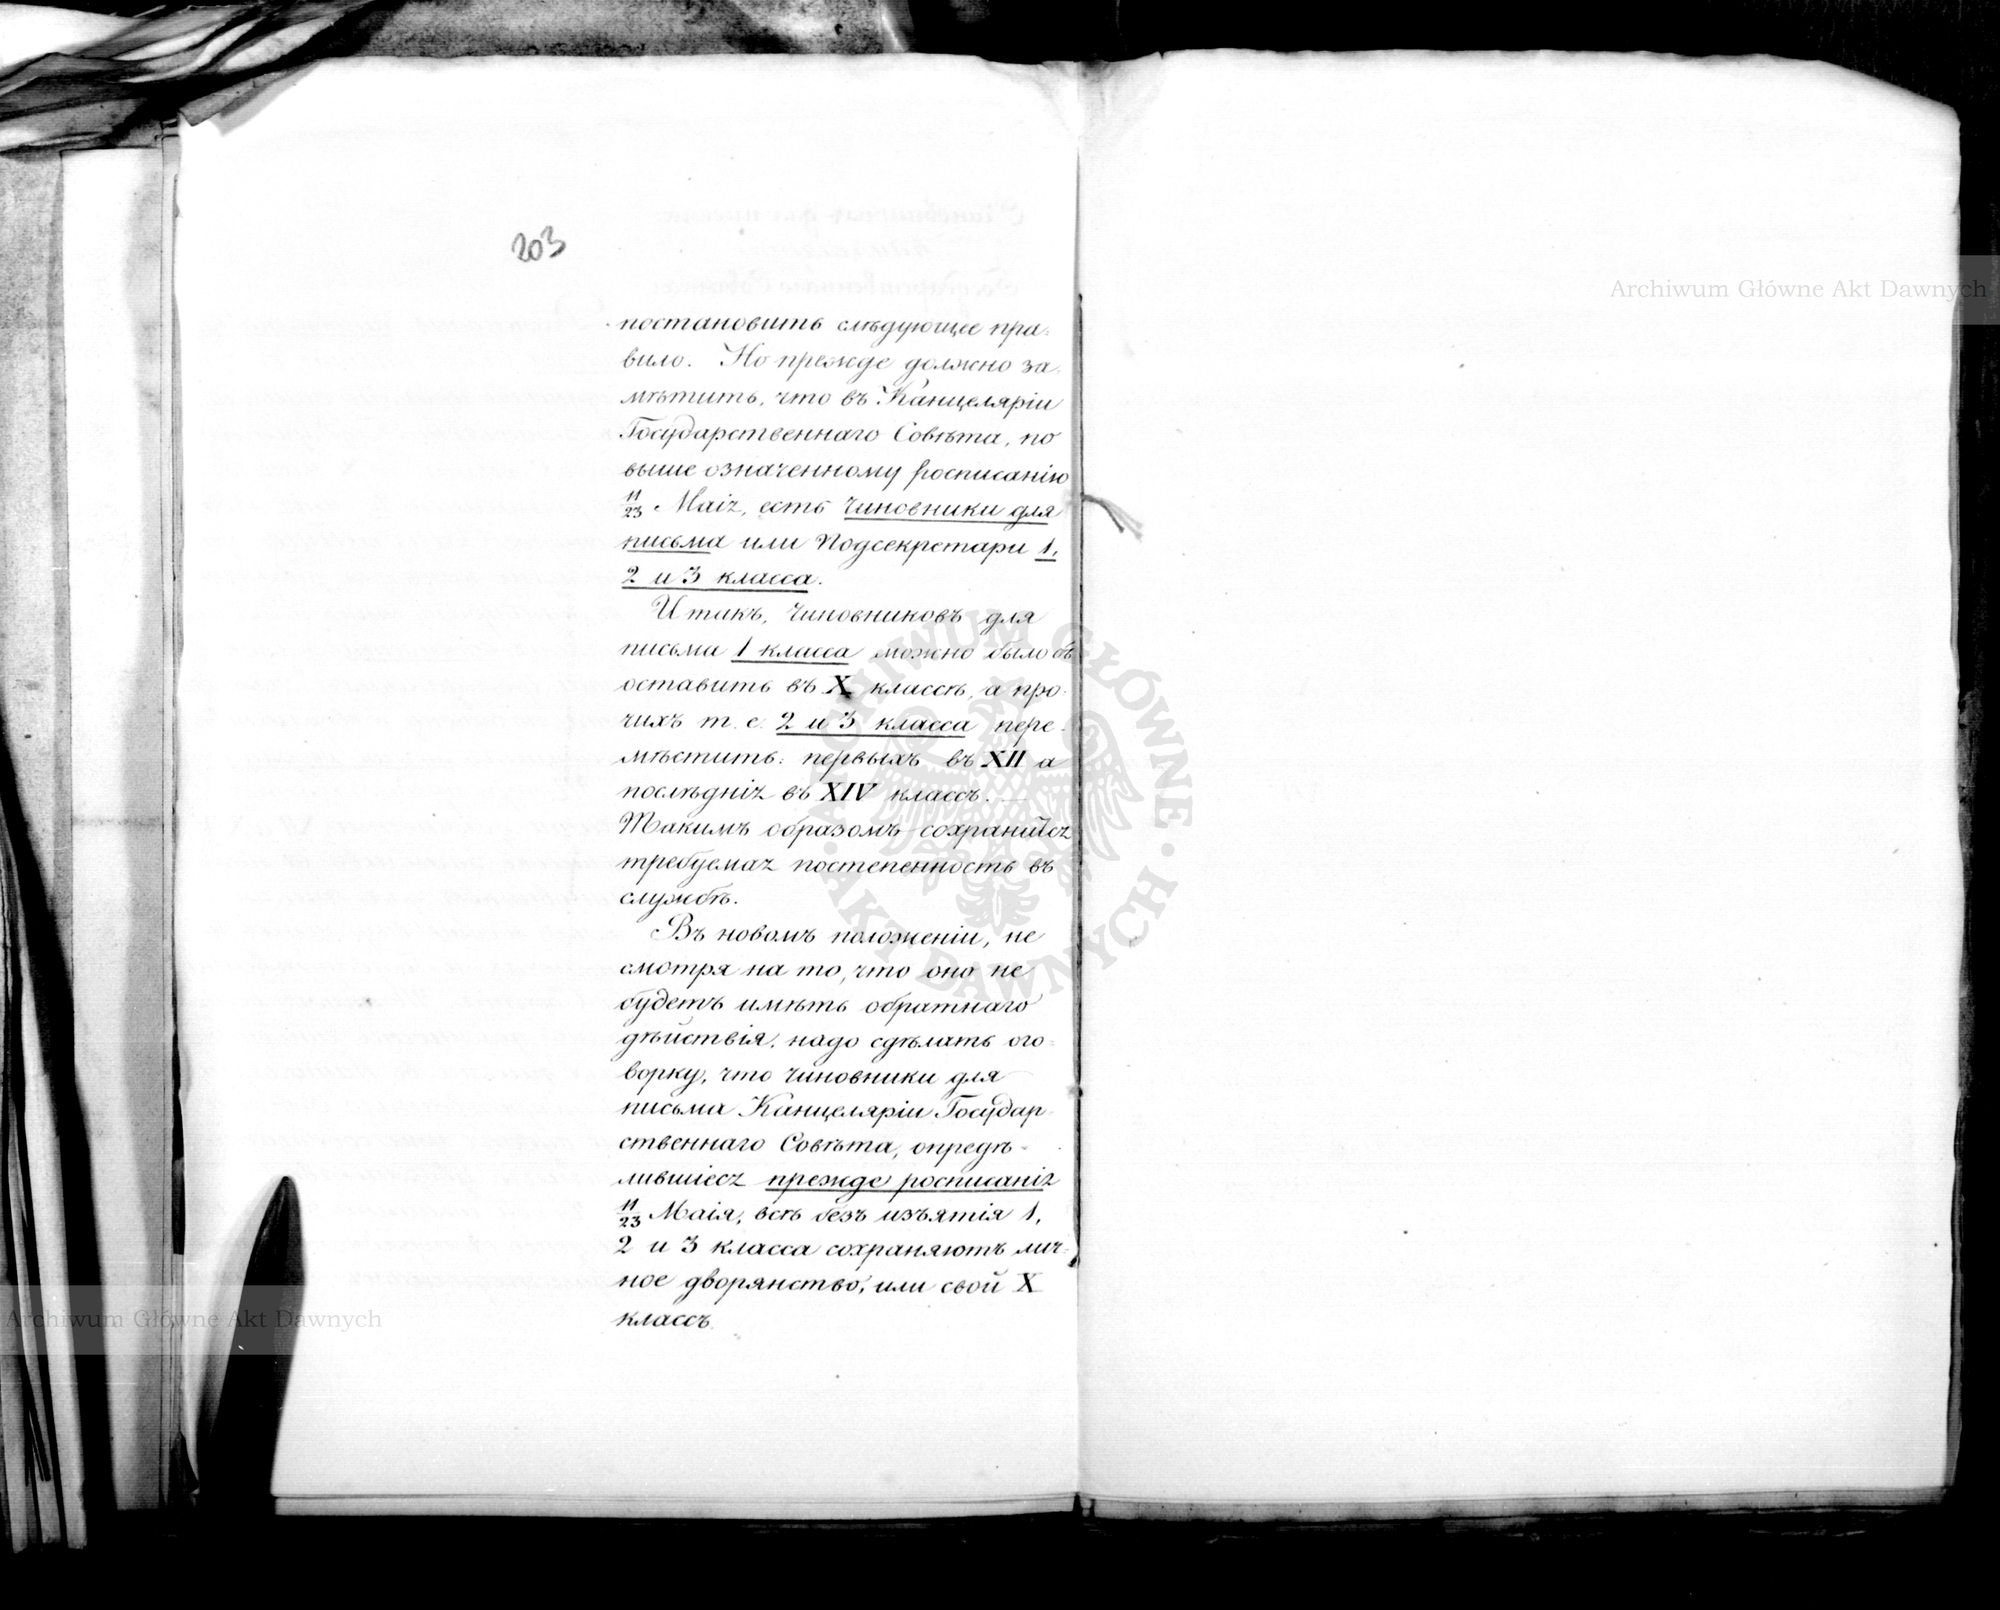 203
постановить слѣдующее пра-
вило. Но прежде должно за-
мѣтить, что въ Канцеляріи
Государственнаго Совѣта, по
выше означенному росписанію
11/23 Маія, есть Чиновники для
письма или Подсекретари 1,
2 и 3 класса.
Итакъ, Чиновниковъ для
письма 1 класса можно было бъ
оставить въ X классѣ, а про-
чихъ т. е. 2 и 3 класса пере-
мѣстить: первыхъ въ XII а
послѣднія въ XIV классъ.
Такимъ образомъ сохранится
требуемая постепенность въ
службѣ.
Въ новомъ положеніи, не
смотря на то, что оно не
будетъ имѣть обратнаго
дѣйствія, надо сдѣлать ого-
ворку, что чиновники для
письма Канцеляріи Государ-
ственнаго Совѣта, опредѣ-
лившіеся прежде росписанія
11/23 Маія, всѣ безъ изъятія 1,
2 и 3 класса сохраняютъ лич-
ное дворянство, или свой X
классъ.
Archiwum Główne Akt Dawnych
Archiwum Główne Akt Dawnych
ARCHIWUM GŁÓWNE AKT DAWNYCH